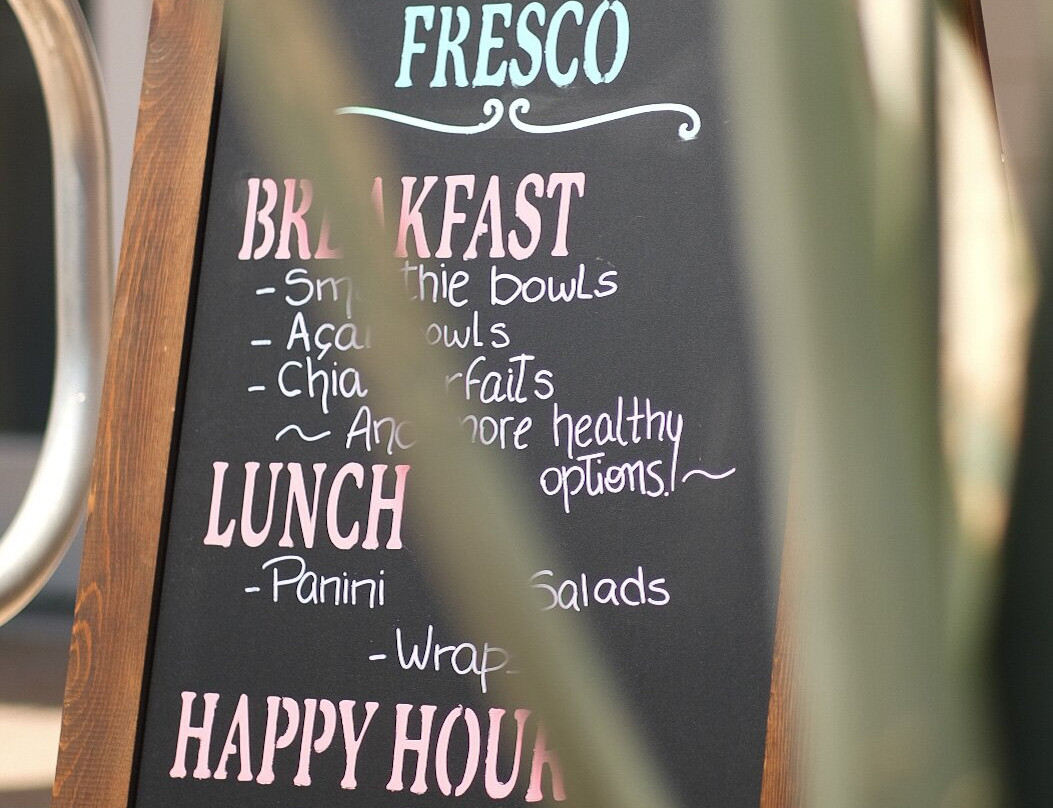 FRESCO
BREAKFAST
- Smoothie bowls
- Açai bowls
- Chia Parfaits
~ And more healthy
options! ~
LUNCH
- Panini Salads
- Wraps
HAPPY HOUR